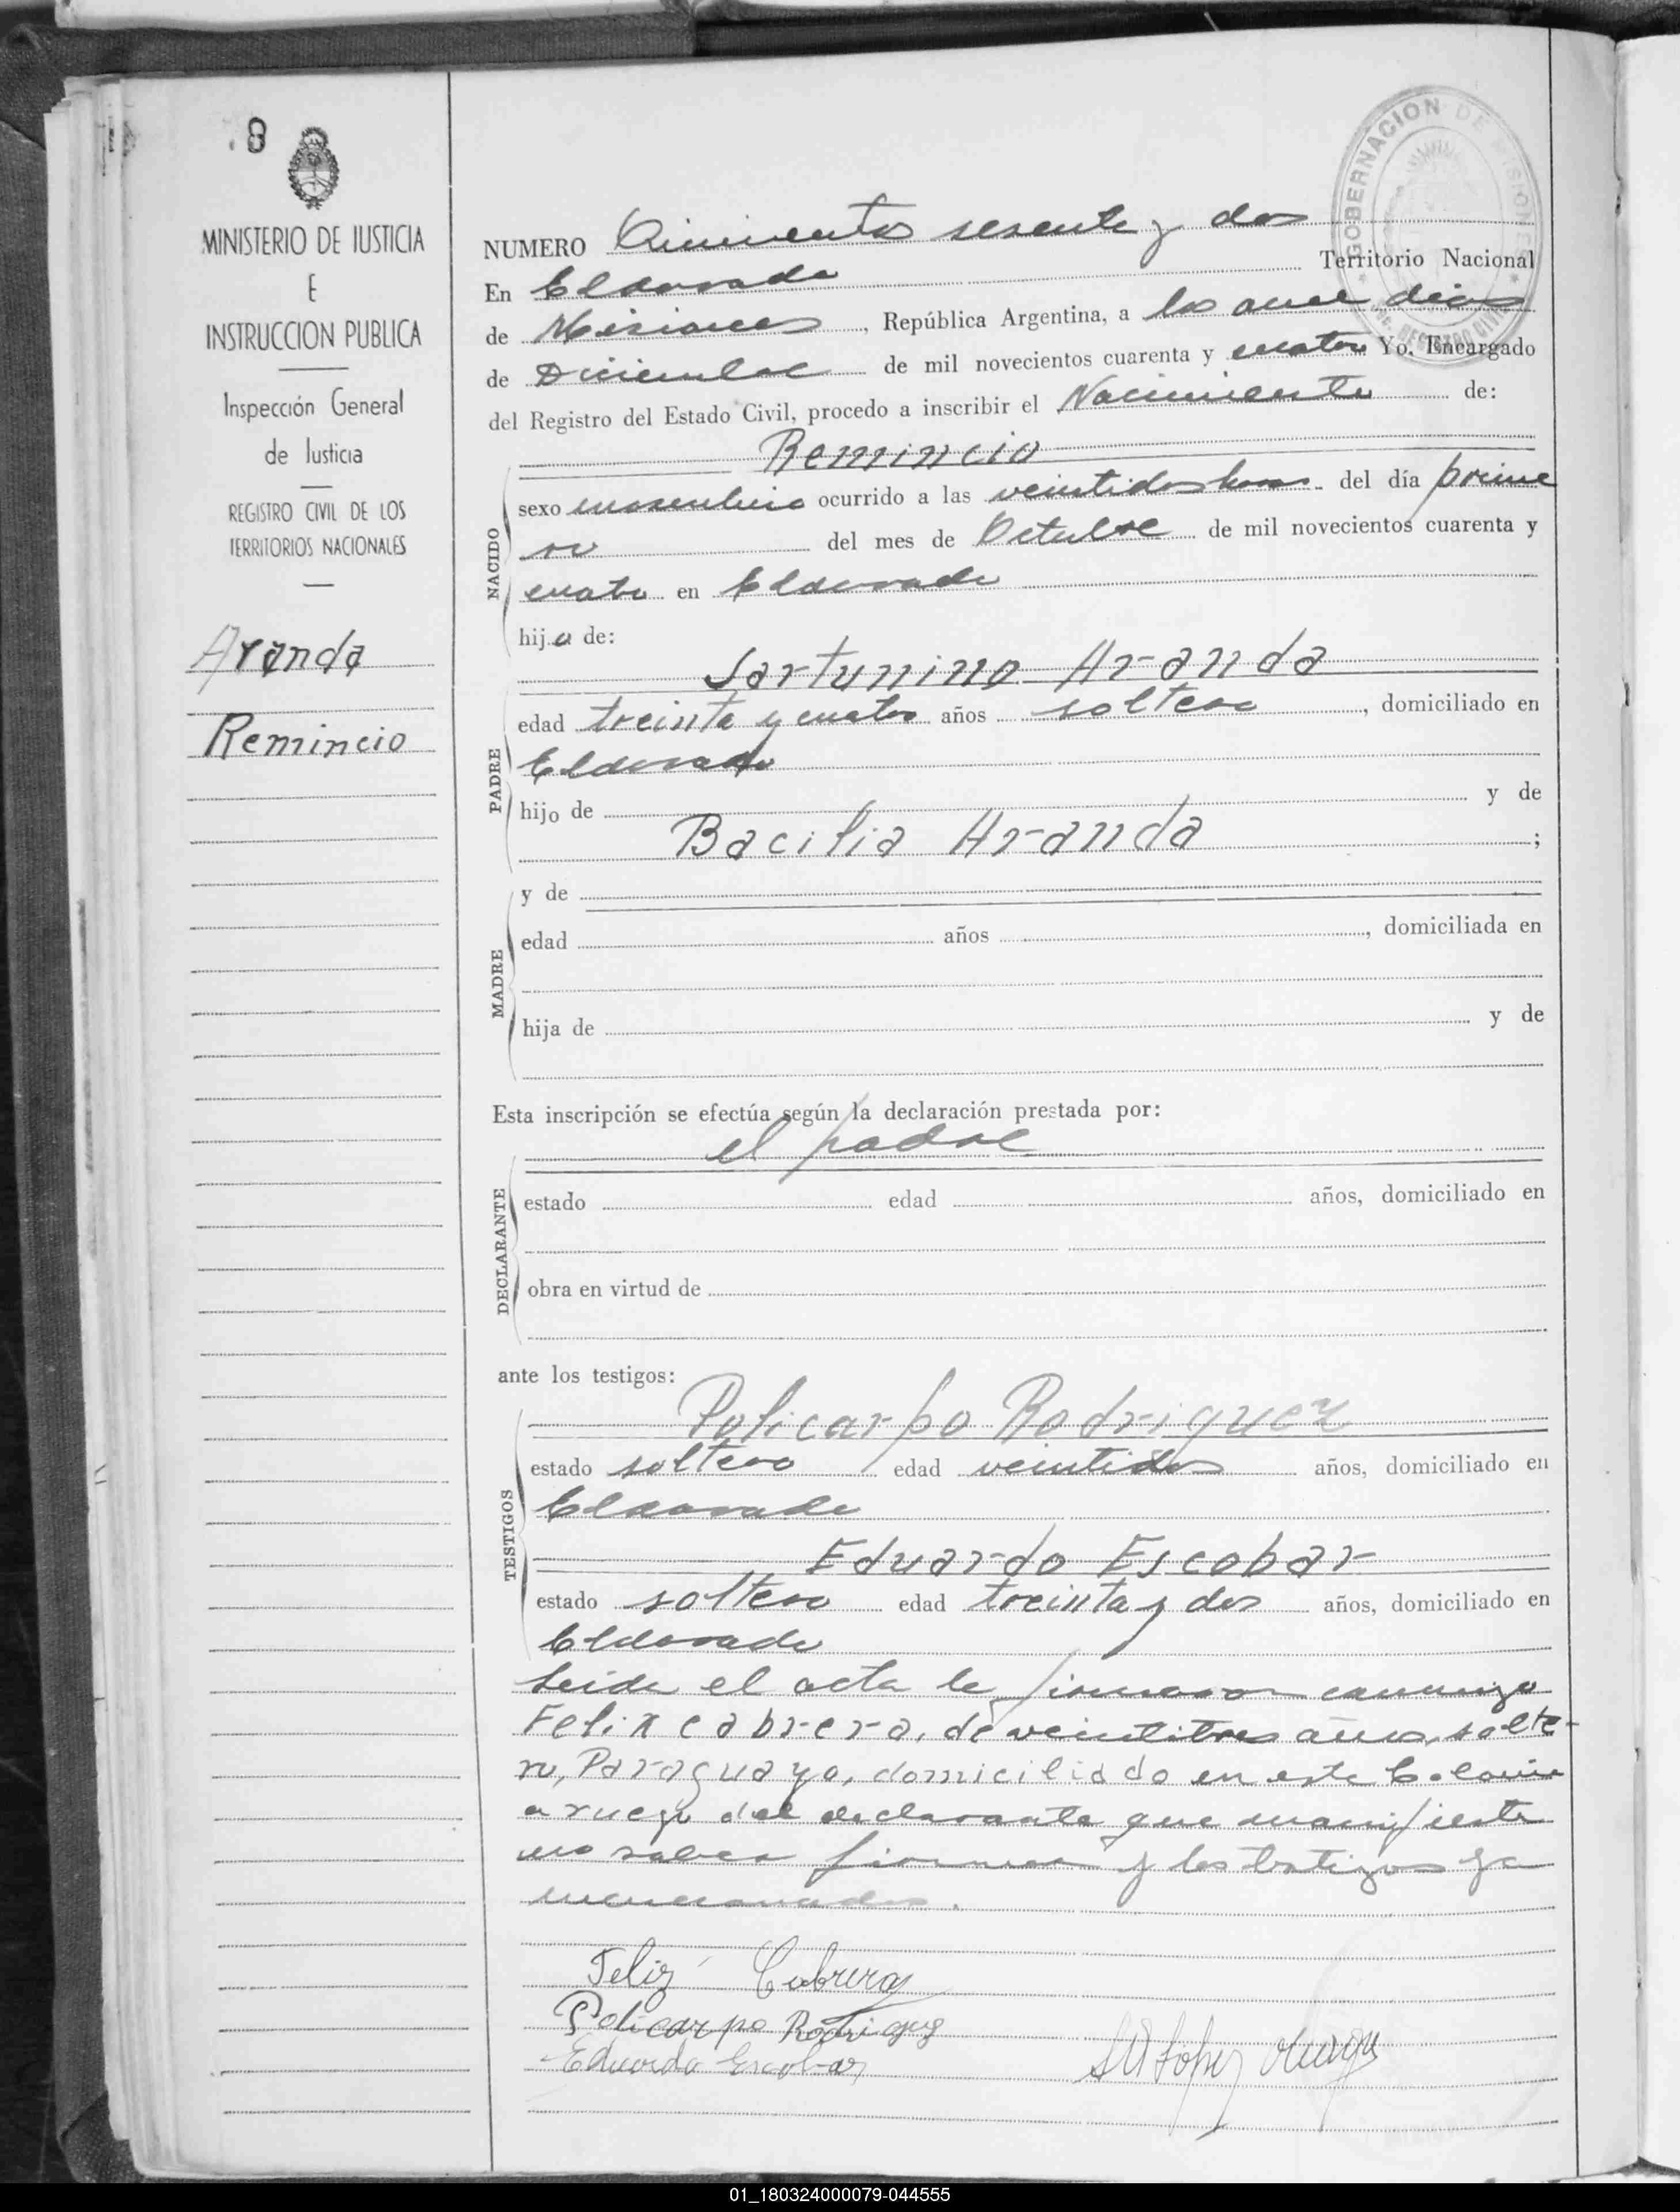 8
MINISTERIO DE JUSTICIA
E
INSTRUCCION PUBLICA
Inspección General
de Justicia
REGISTRO CIVIL DE LOS
TERRITORIOS NACIONALES
Aranda
Remincio
GOBERNACION DE MISIONES
REGISTRO CIVIL
NUMERO Quinientos sesenta y dos
En Eldorado Territorio Nacional
de Misiones, República Argentina, a los once dias
de Diciembre de mil novecientos cuarenta y cuatro Yo, Encargado
del Registro del Estado Civil, procedo a inscribir el Nacimiento de:
Remincio
NACIDO
sexo masculino ocurrido a las veintidos horas del día prime
ro del mes de Octubre de mil novecientos cuarenta y
cuatro en Eldorado
hijo de:
Sartunino Aranda
PADRE
edad treinta y cuatro años soltero, domiciliado en
Eldorado
hijo de y de
Bacilia Aranda ;
MADRE
y de
edad años , domiciliada en
hija de y de
Esta inscripción se efectúa según la declaración prestada por:
el padre
DECLARANTE
estado edad años, domiciliado en
obra en virtud de
ante los testigos:
Policarpo Rodriguez
TESTIGOS
estado soltero edad veintidos años, domiciliado en
Eldorado
Eduardo Escobar
estado soltero edad treinta y dos años, domiciliado en
Eldorado
Leida el acta la firmaron conmigo
Felix Cabrera, de veintitres años, solte-
ro, Paraguayo, domiciliado en esta Colonia
a ruego del declarante que manifiesta
no saber firmar y los testigos ya
mencionados.
Feliz Cabrera
Policarpo Rodrigues
Eduardo Escobar
López
01_180324000079-044555